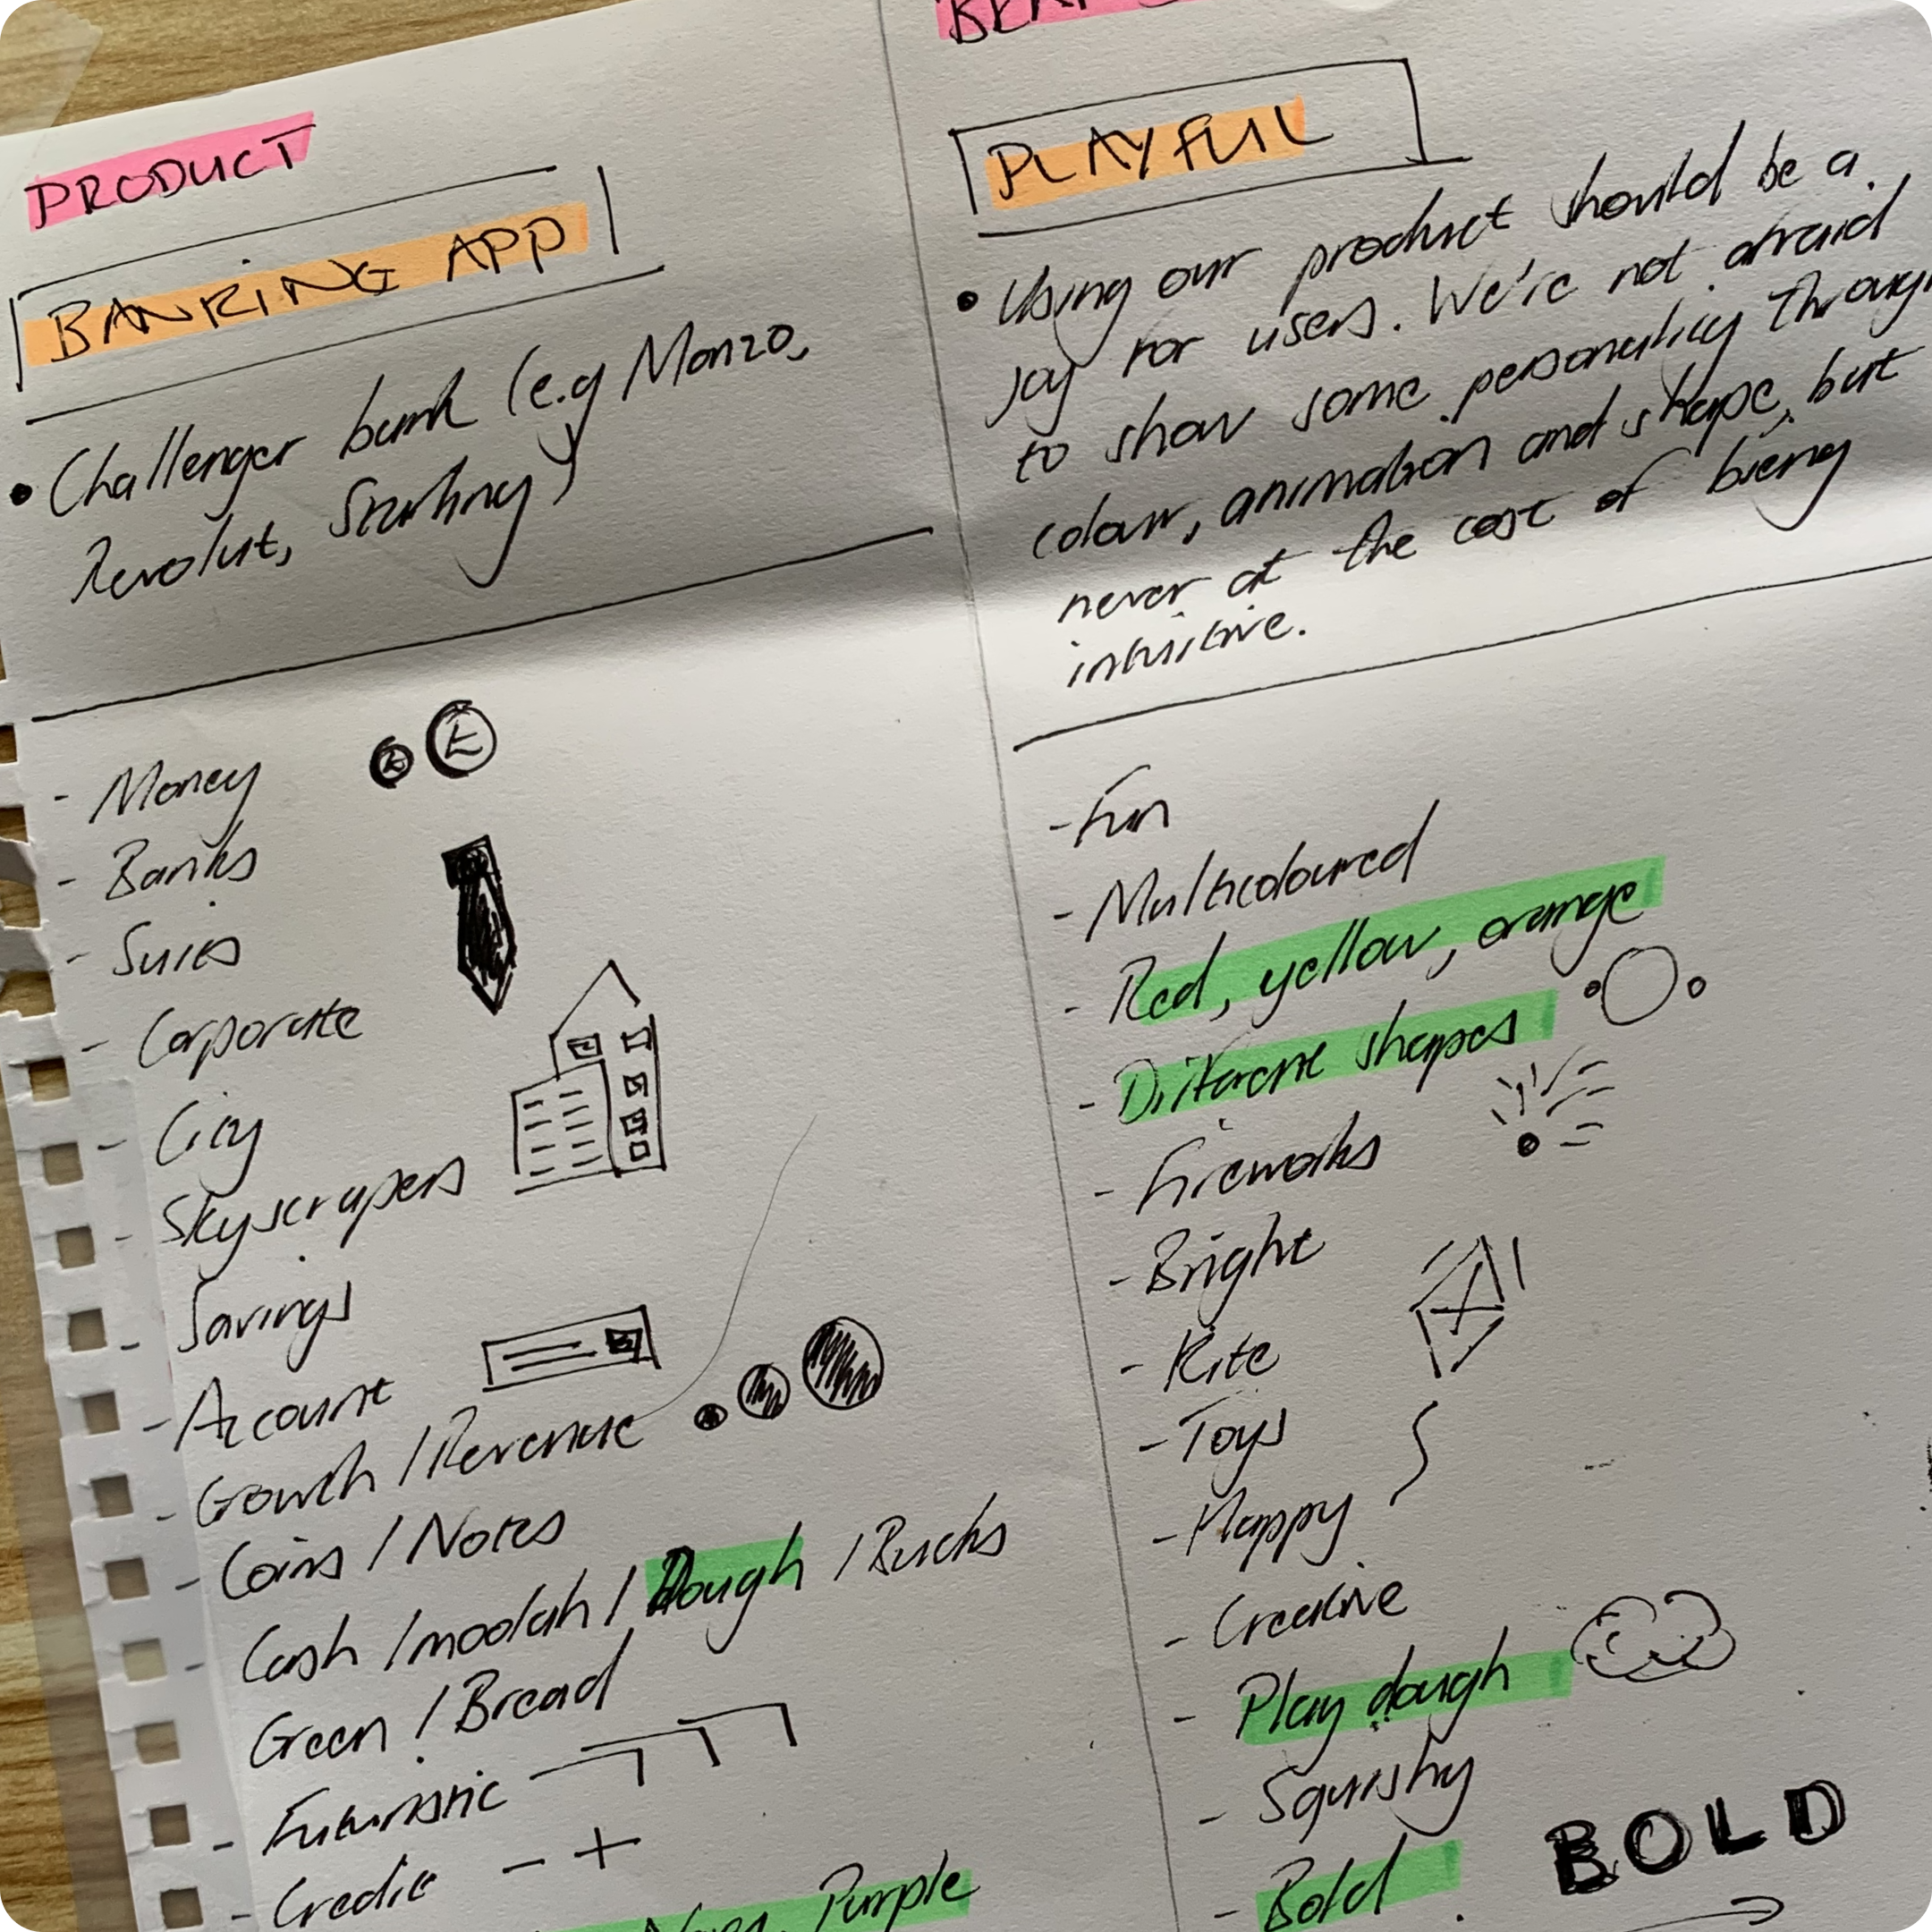 PRODUCT
BANKING APP
• Challenger bank (e.g Monzo,
Revolut, Starling)
- Money
- Banks
- Suits
- Corporate
- City
- Skyscrapers
- Savings
- Account
- Growth / Revenue
- Coins / Notes
- Cash / moolah / Dough / Bucks
Green / Bread
- Futuristic
- Credit - +
Purple
PLAYFUL
• Using our product should be a
joy for users. We're not afraid
to show some personality through
colour, animation and shape, but
never at the cost of bieng
intuitive.
- Fun
- Multicoloured
- Red, yellow, orange
- Different shapes
- Fireworks
- Bright
- Kite
- Toys
- Happy
- Creative
- Play dough
- Squishy
- Bold
BOLD